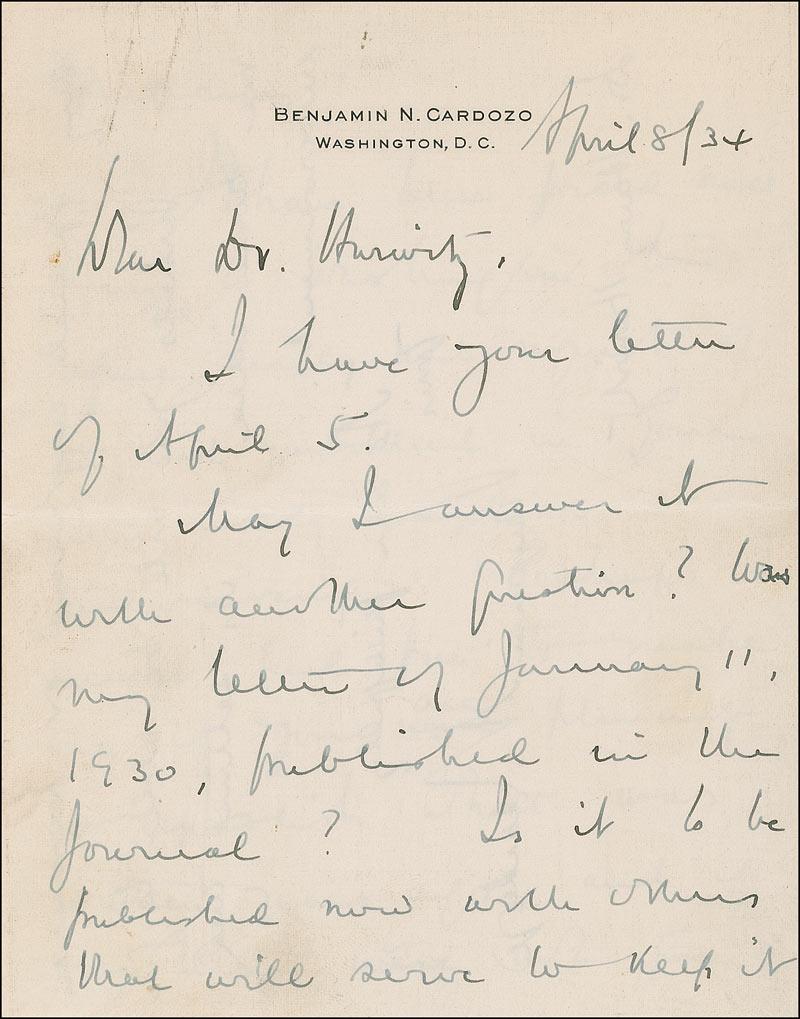 BENJAMIN N. CARDOZO
WASHINGTON, D. C.
April 8/34
Dear Dr. Hurwitz,
I have your letter
of April 5.
May I answer it
with another question? Was
my letter of January 11,
1930, published in the
Journal? Is it to be
published now with others
that will serve to keep it